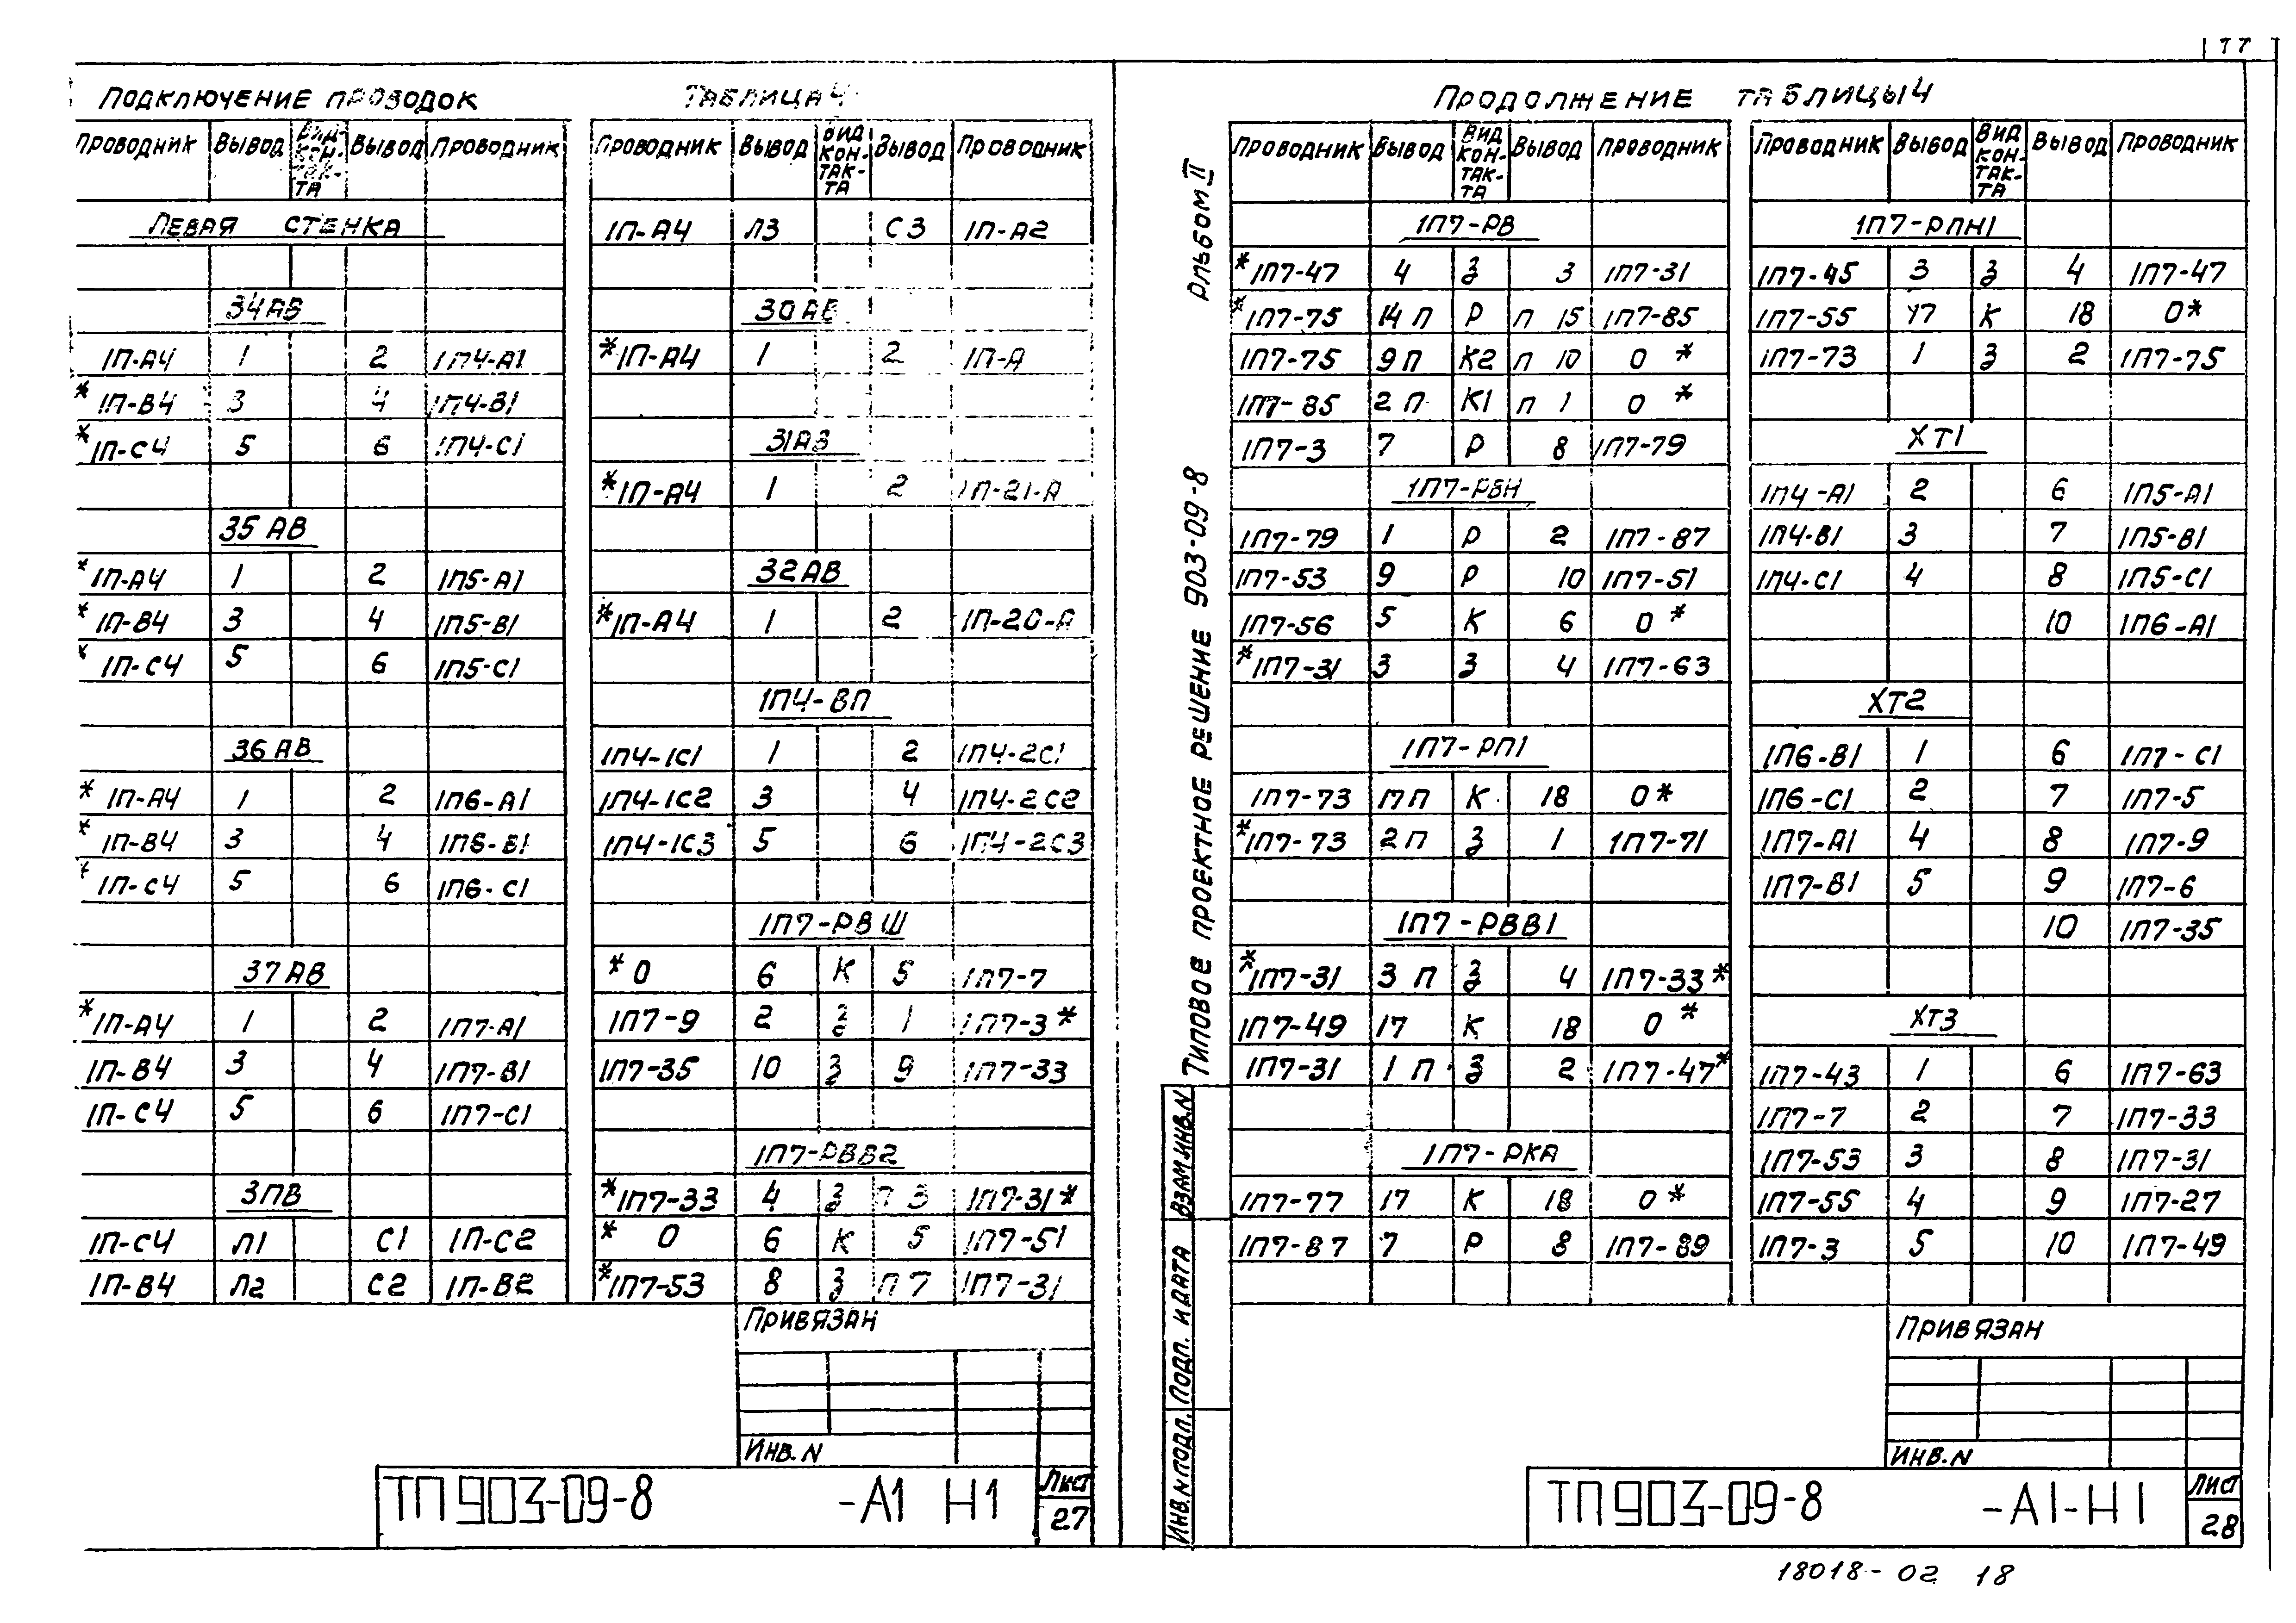 17
Подключение проводок Таблица 4
Проводник Вывод Вид контакта Вывод Проводник
Левая стенка
34АВ
1П-А4 1 2 1П4-А1
*1П-В4 3 4 1П4-В1
*1П-С4 5 6 1П4-С1
35АВ
*1П-А4 1 2 1П5-А1
*1П-В4 3 4 1П5-В1
*1П-С4 5 6 1П5-С1
36АВ
*1П-А4 1 2 1П6-А1
*1П-В4 3 4 1П6-В1
*1П-С4 5 6 1П6-С1
37АВ
*1П-А4 1 2 1П7-А1
1П-В4 3 4 1П7-В1
1П-С4 5 6 1П7-С1
3ПВ
1П-С4 Л1 С1 1П-С2
1П-В4 Л2 С2 1П-В2
Проводник Вывод Вид контакта Вывод Проводник
1П-А4 Л3 С3 1П-А2
30АВ
*1П-А4 1 2 1П-А
31АВ
*1П-А4 1 2 1П-21-А
32АВ
*1П-А4 1 2 1П-20-А
1П4-ВП
1П4-1С1 1 2 1П4-2С1
1П4-1С2 3 4 1П4-2С2
1П4-1С3 5 6 1П4-2С3
1П7-РВШ
*0 6 К 5 1П7-7
1П7-9 2 З 1 1П7-3*
1П7-35 10 З 9 1П7-33
1П7-РВВ2
*1П7-33 4 З П 3 1П7-31*
* 0 6 К 5 1П7-51
*1П7-53 8 З П 7 1П7-31
Привязан
Инв. N
ТП 903-09-8 -А1 Н1
Лист
27
Альбом II
Типовое проектное решение 903-09-8
Взам инв. N
Подп. и дата
Инв. N подл.
Продолжение таблицы 4
Проводник Вывод Вид контакта Вывод Проводник
1П7-РВ
*1П7-47 4 З 3 1П7-31
*1П7-75 14 П Р П 15 1П7-85
1П7-75 9 П К2 П 10 0 *
1П7-85 2 П К1 П 1 0 *
1П7-3 7 Р 8 1П7-79
1П7-РВН
1П7-79 1 Р 2 1П7-87
1П7-53 9 Р 10 1П7-51
1П7-56 5 К 6 0 *
*1П7-31 3 З 4 1П7-63
1П7-РП1
1П7-73 17П К 18 0 *
*1П7-73 2 П З 1 1П7-71
1П7-РВВ1
*1П7-31 3 П З 4 1П7-33*
1П7-49 17 К 18 0 *
1П7-31 1 П З 2 1П7-47*
1П7-РКА
1П7-77 17 К 18 0 *
1П7-87 7 Р 8 1П7-89
Проводник Вывод Вид контакта Вывод Проводник
1П7-РПН1
1П7-45 3 З 4 1П7-47
1П7-55 17 К 18 0*
1П7-73 1 З 2 1П7-75
ХТ1
1П4-А1 2 6 1П5-А1
1П4-В1 3 7 1П5-В1
1П4-С1 4 8 1П5-С1
10 1П6-А1
ХТ2
1П6-В1 1 6 1П7-С1
1П6-С1 2 7 1П7-5
1П7-А1 4 8 1П7-9
1П7-В1 5 9 1П7-6
10 1П7-35
ХТ3
1П7-43 1 6 1П7-63
1П7-7 2 7 1П7-33
1П7-53 3 8 1П7-31
1П7-55 4 9 1П7-27
1П7-3 5 10 1П7-49
Привязан
Инв. N
ТП 903-09-8 -А1-Н1
Лист
28
18018-02 18